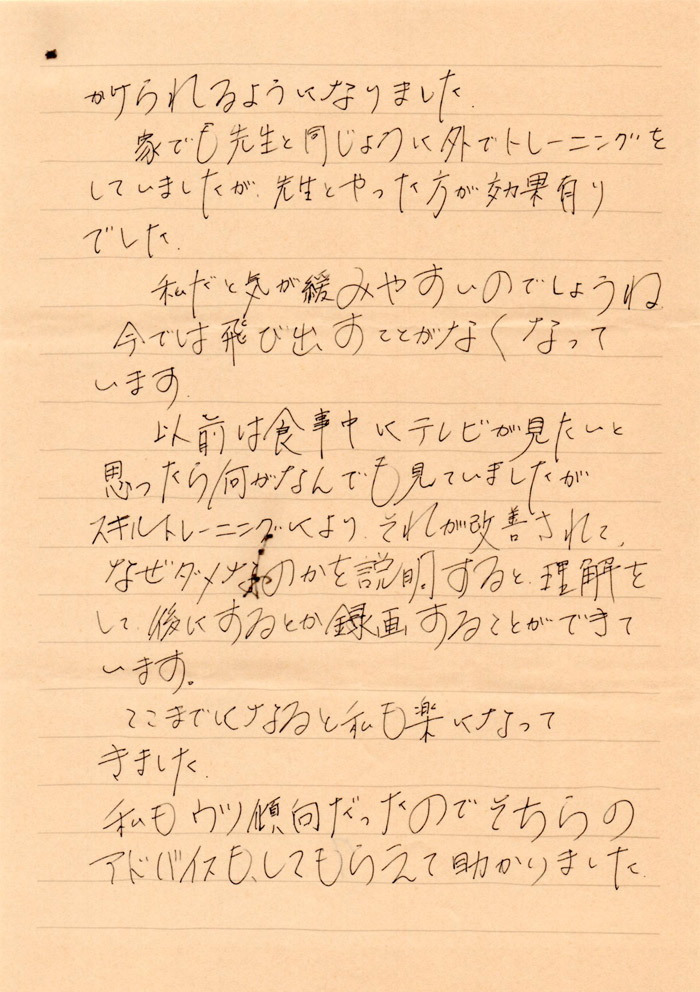 かけられるようになりました.
家でも先生と同じように外でトレーニングを
していましたが、先生とやった方が効果有り
でした.
私だと気が緩みやすいのでしょうね
今では飛び出すことがなくなって
います.
以前は食事中にテレビが見たいと
思ったら何がなんでも見ていましたが
スキルトレーニングにより、それが改善されて、
なぜダメなのかを説明すると、理解を
して、後にするとか録画することができて
います。
ここまでになると私も楽になって
きました.
私もウツ傾向だったのでそちらの
アドバイスも、してもらえて助かりました.